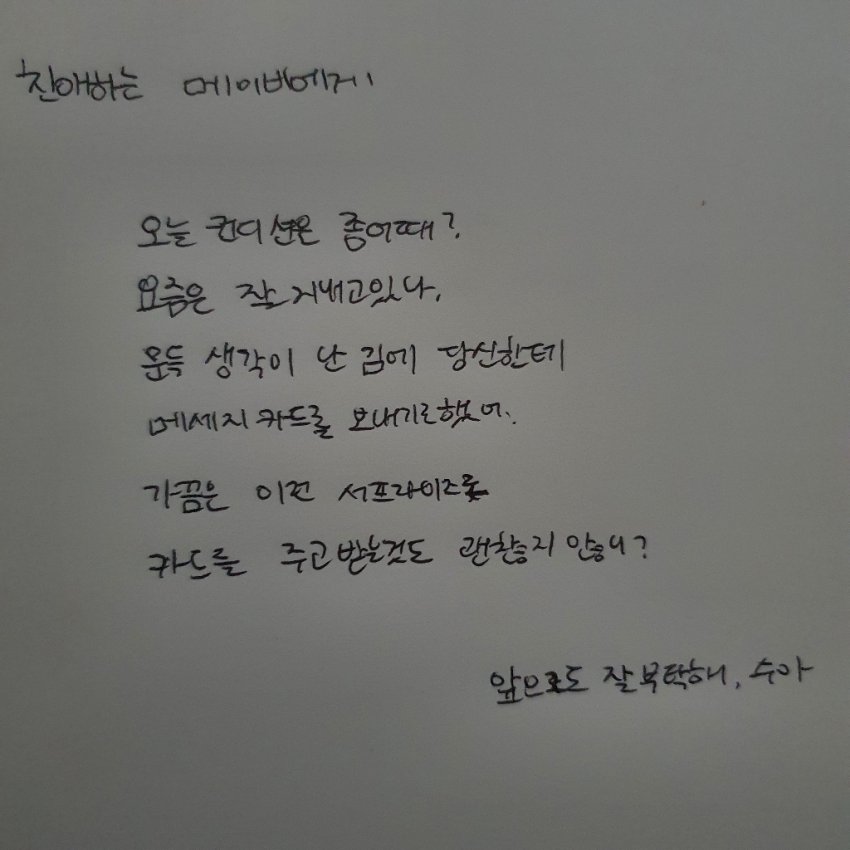 친애하는 메이비에게
오늘 컨디션은 좀어때?
요즘은 잘 지내고있다.
문득 생각이 난 김에 당신한테
메세지 카드를 보내기로했어.
가끔은 이런 서프라이즈로
카드를 주고받는것도 괜찮지 않아?
앞으로도 잘 부탁해, 수아